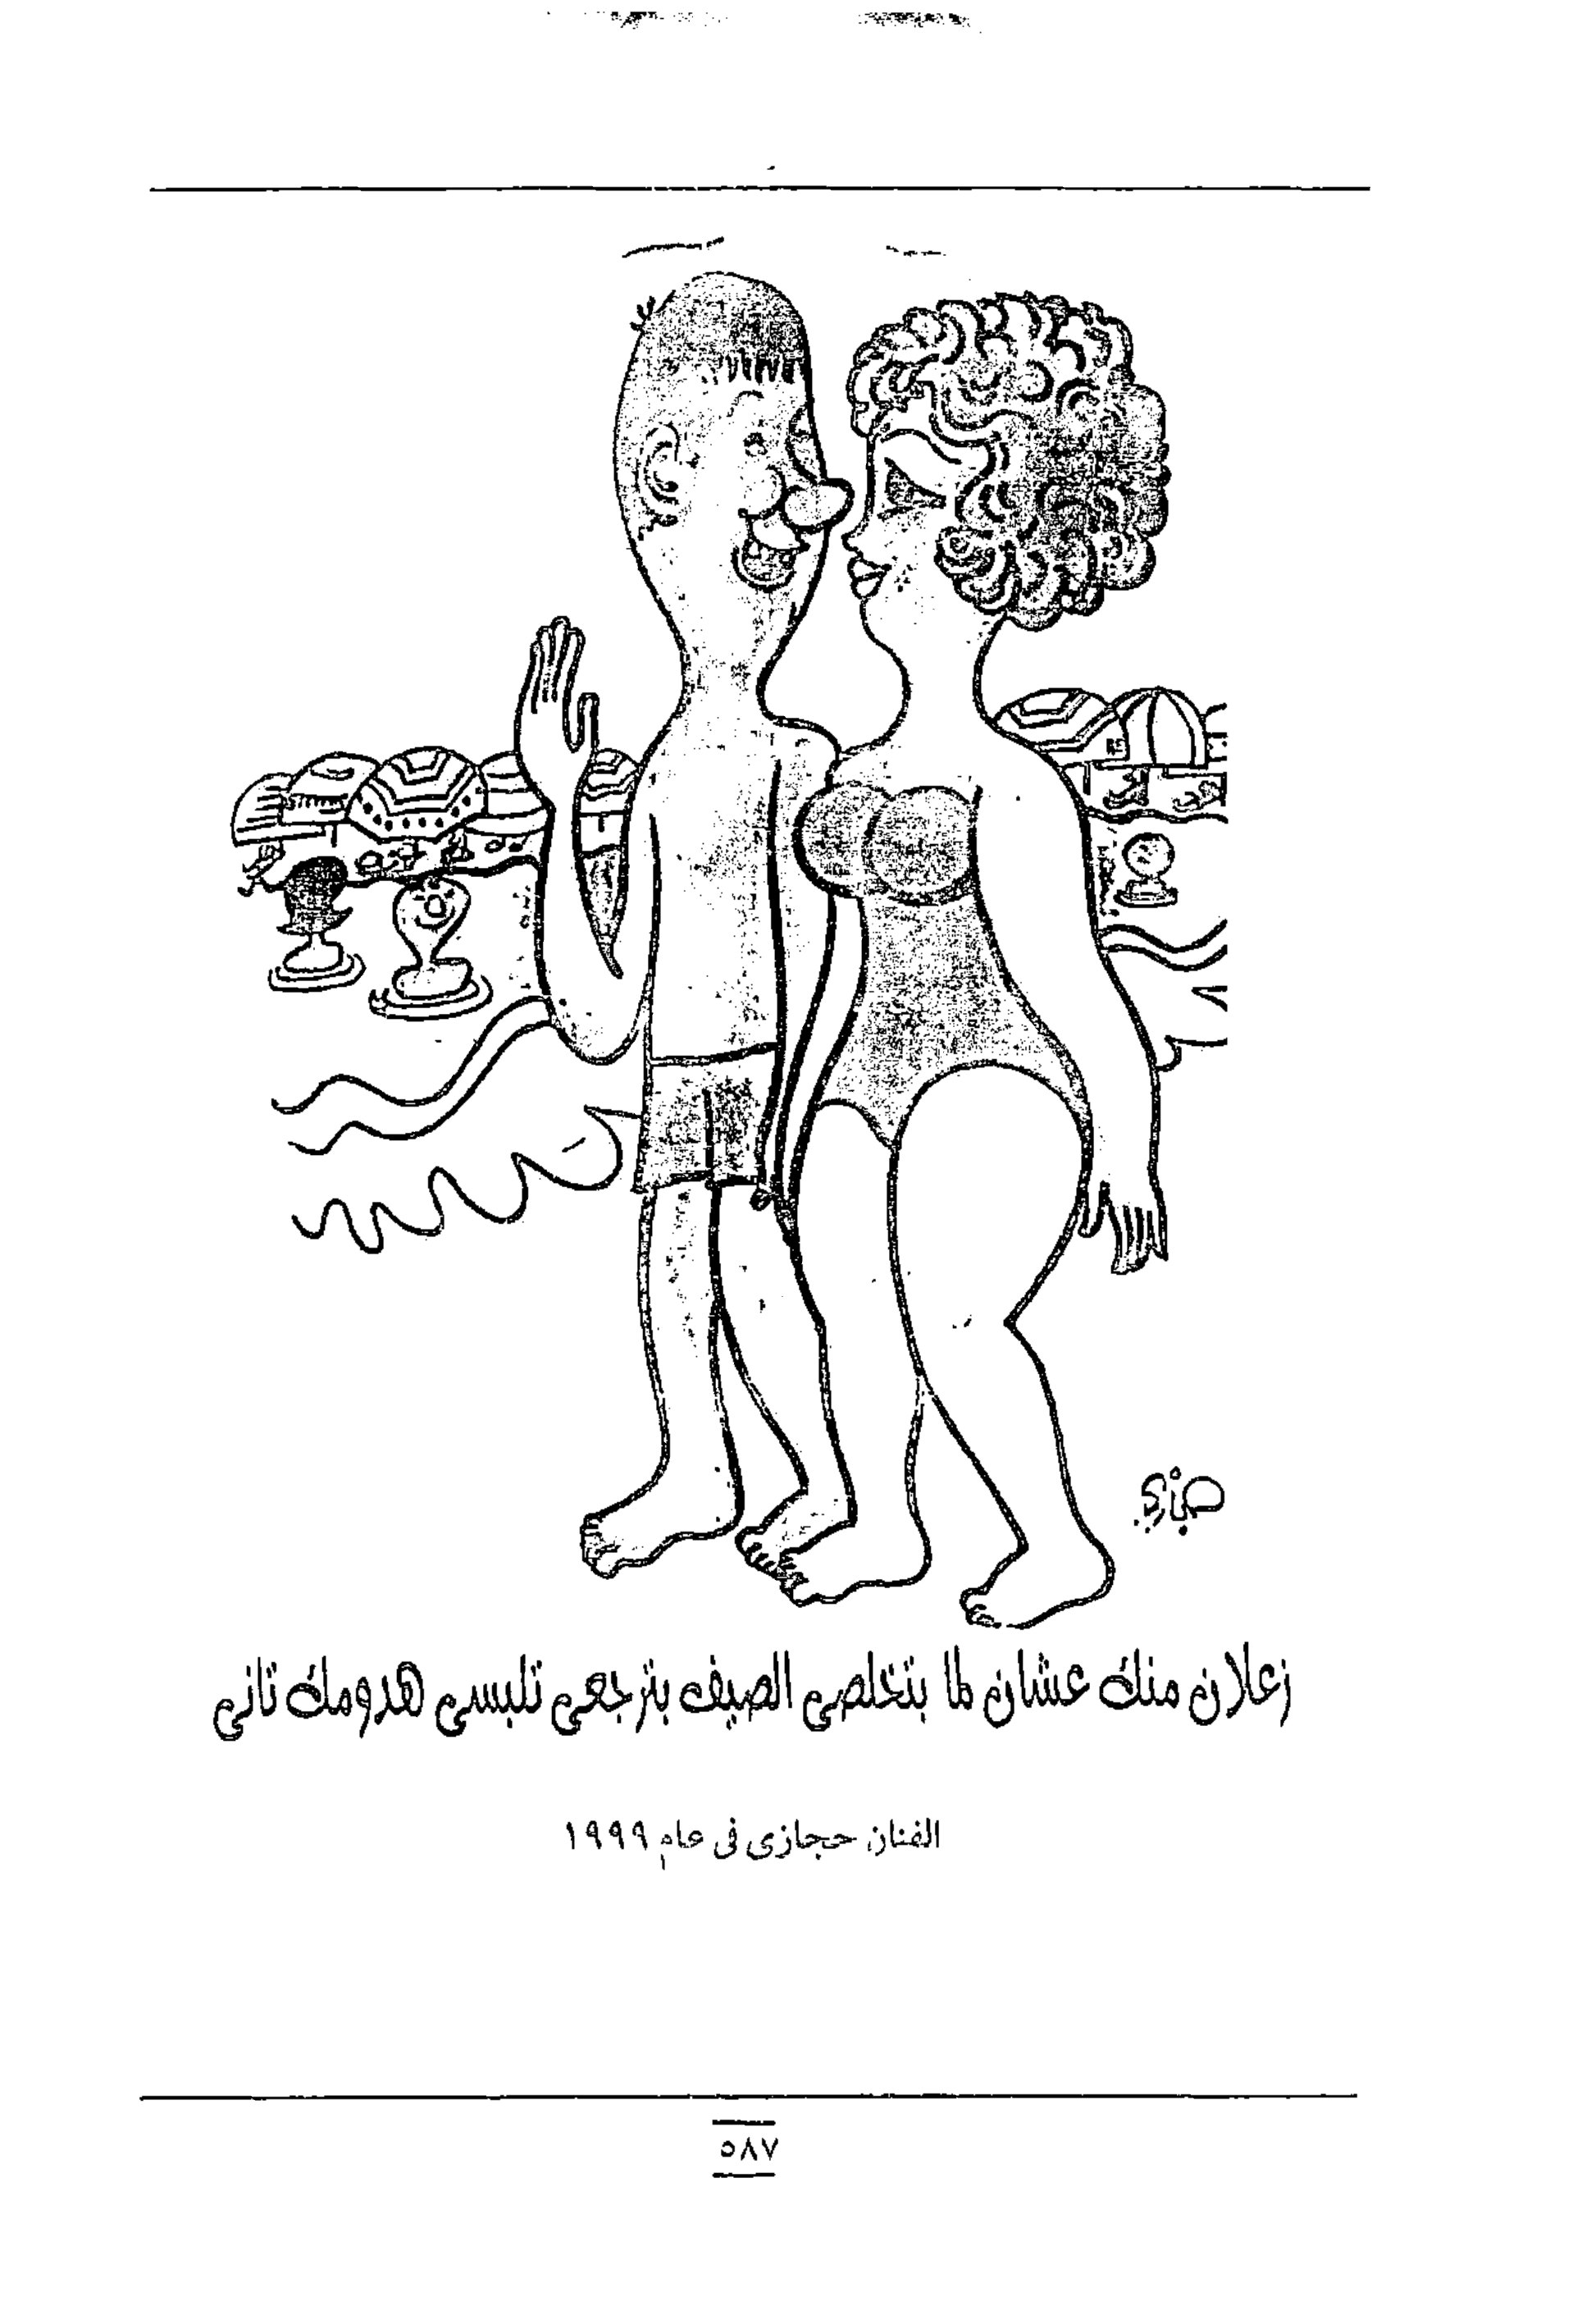 حجازي
زعلان منك عشان لما بتخلصى الصيف بترجعى تلبسى هدومك تانى
الفنان حجازى فى عام ١٩٩٩
٥٨٧